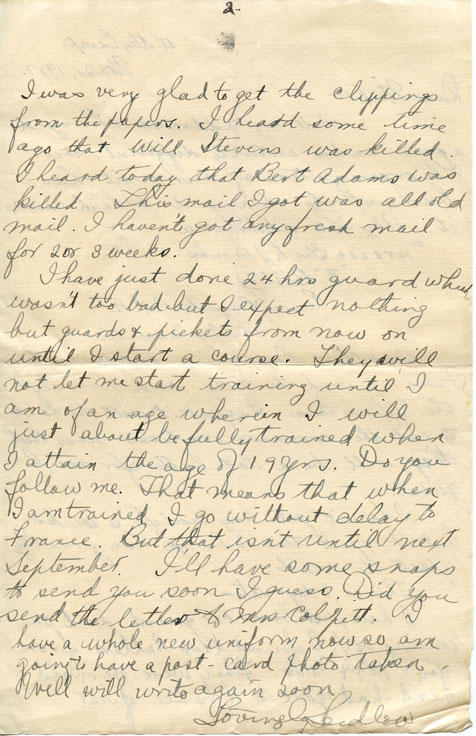 2
I was very glad to get the clippings
from the papers. I heard some time
ago that Will Stevens was killed.
I heard today that Bert Adams was
killed. This mail I got was all old
mail. I haven't got any fresh mail
for 2 or 3 weeks.
I have just done 24 hrs guard which
wasn't too bad but I expect nothing
but guards & pickets from now on
until I start a course. They will
not let me start training until I
am of an age wherein I will
just about be fully trained when
I attain the age of 19 yrs. Do you
follow me. That means that when
I am trained I go without delay to
France. But that isn't until next
September. I'll have some snaps
to send you soon I guess. Did you
send the letter to Mrs Colpitt. I
have a whole new uniform now so am
going to have a post-card photo taken.
Well will write again soon
Loving